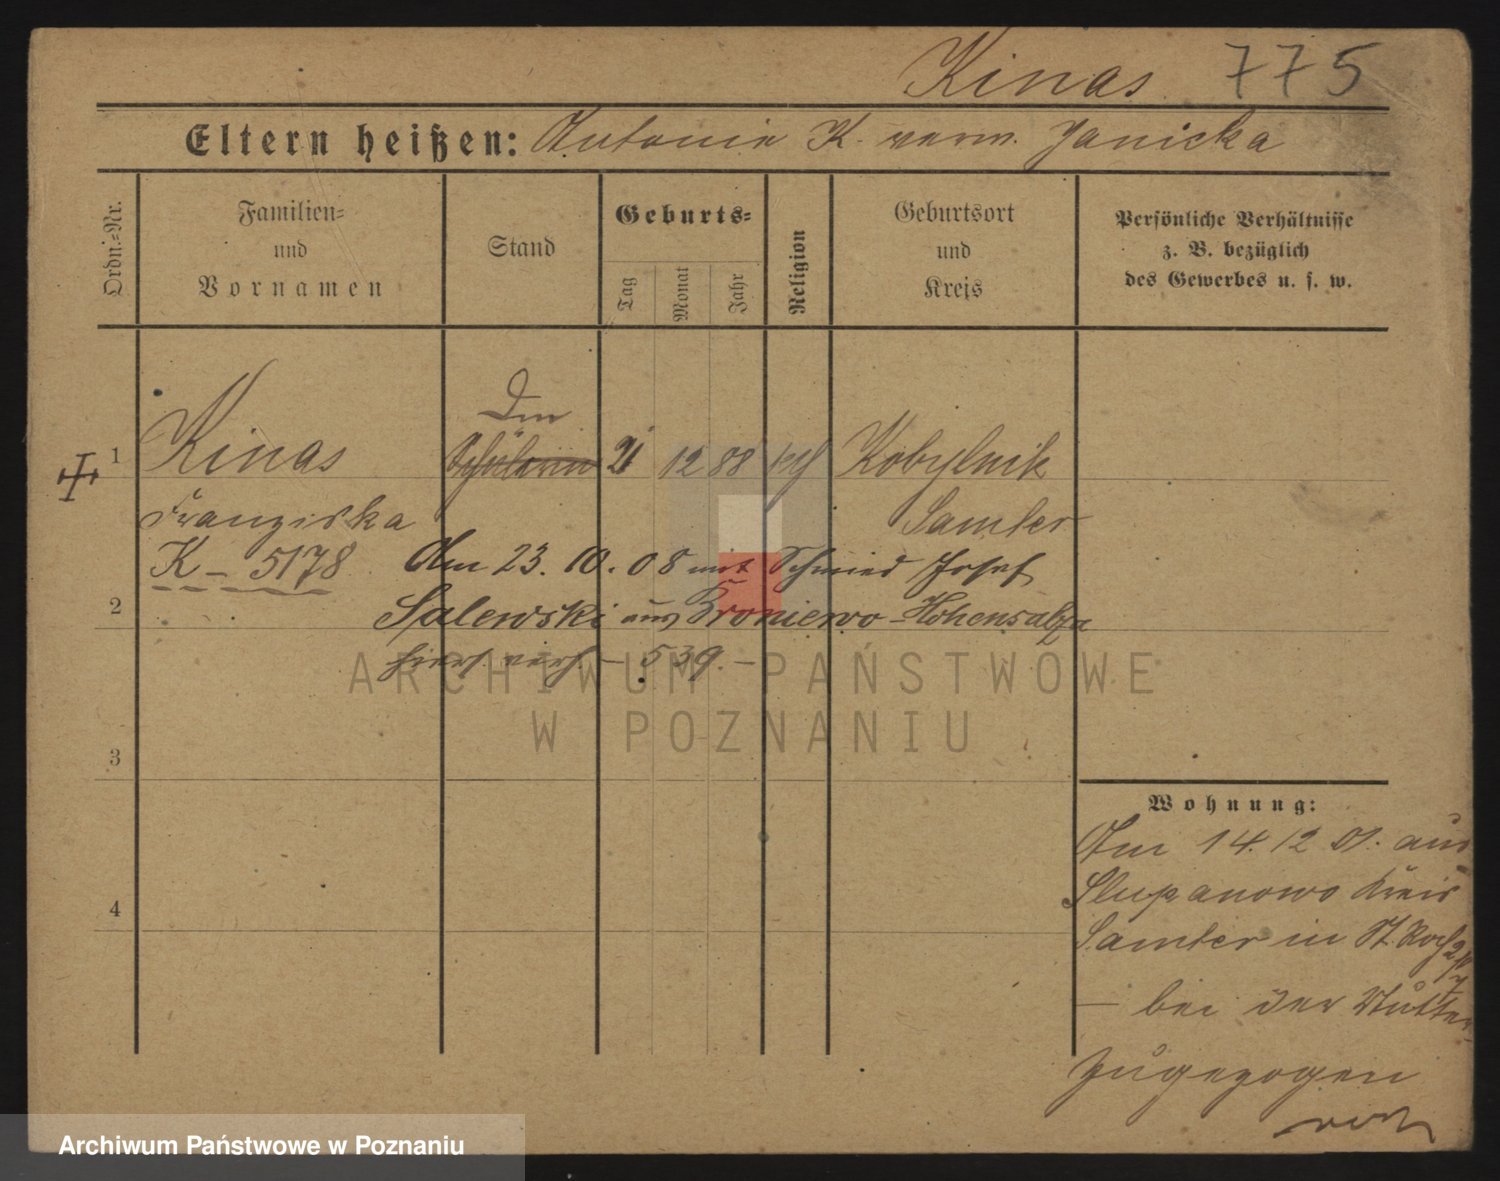 Kinas 775
Eltern heißen: Antonie K. verw. Janicka
Ordn.-Nr.
Familien-
und
Vornamen
Stand
Geburts-
Tag
Monat
Jahr
Religion
Geburtsort
und
Kreis
Persönliche Verhältnisse
z. B. bezüglich
des Gewerbes u. s. w.
1 Kinas Schülerin 21 12 88 kth Kobylnik
Franziska Samter
K - 5178 Am 23. 10. 08 mit Schmied Josef
2 Salewski aus Kroniewo-Hohensalza
hiers. verh. - 539. -
3
4
Wohnung:
Am 14. 12 01. aus
Slupanowo Kreis
Samter in St. Roch
- bei der Mutter
zugezogen
ARCHIWUM PAŃSTWOWE
W POZNANIU
Archiwum Państwowe w Poznaniu